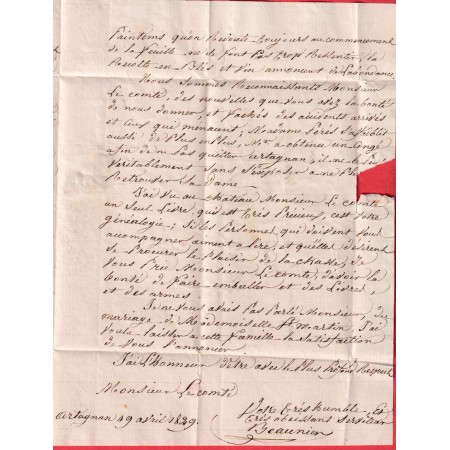 Printems qu'on Ressent toujours au commencement
de la feuille ne se font pas trop Ressentir, la
Recolte en Bled et vin annoncent de Labondance,
Nous Sommes Reconnaissants Monsieur
Le comte, des nouvelles que vous avez la bonté
de nous donner, et fachés des accidents arrivés
et Ceux qui menacent; Madame Pérès s'affoiblit
aussi de Plus en Plus, Mr a obtenu un Congé
afin de ne pas quitter artagnan, il ne le Peut
Veritablement Sans S'exposer a ne Plus
Retrouver Sa Dame
J'ai vu au chateau Monsieur Le comte
un Seul Livre, qui est très Précieux, c'est votre
généalogie; Si les Personnes qui doivent vous
accompagner aiment a lire, et qu'elles désirent
Se Procurer le Plaisir de la chasse, Je
vous Prie Monsieur Le comte, d'avoir la
bonté de faire emballer et des Livres,
et des armes.
Je ne vous avais pas Parlé Monsieur, du
mariage de Mademoiselle St Martin, J'ai
voulu laisser a cette famille la Satisfaction
de vous l'annoncer.
J'ai L'honneur d'être avec le Plus Profond Respect
Monsieur Le comte
Votre très humble Et
artagnan 19 avril 1829. très obeissant Serviteur
Beaunien